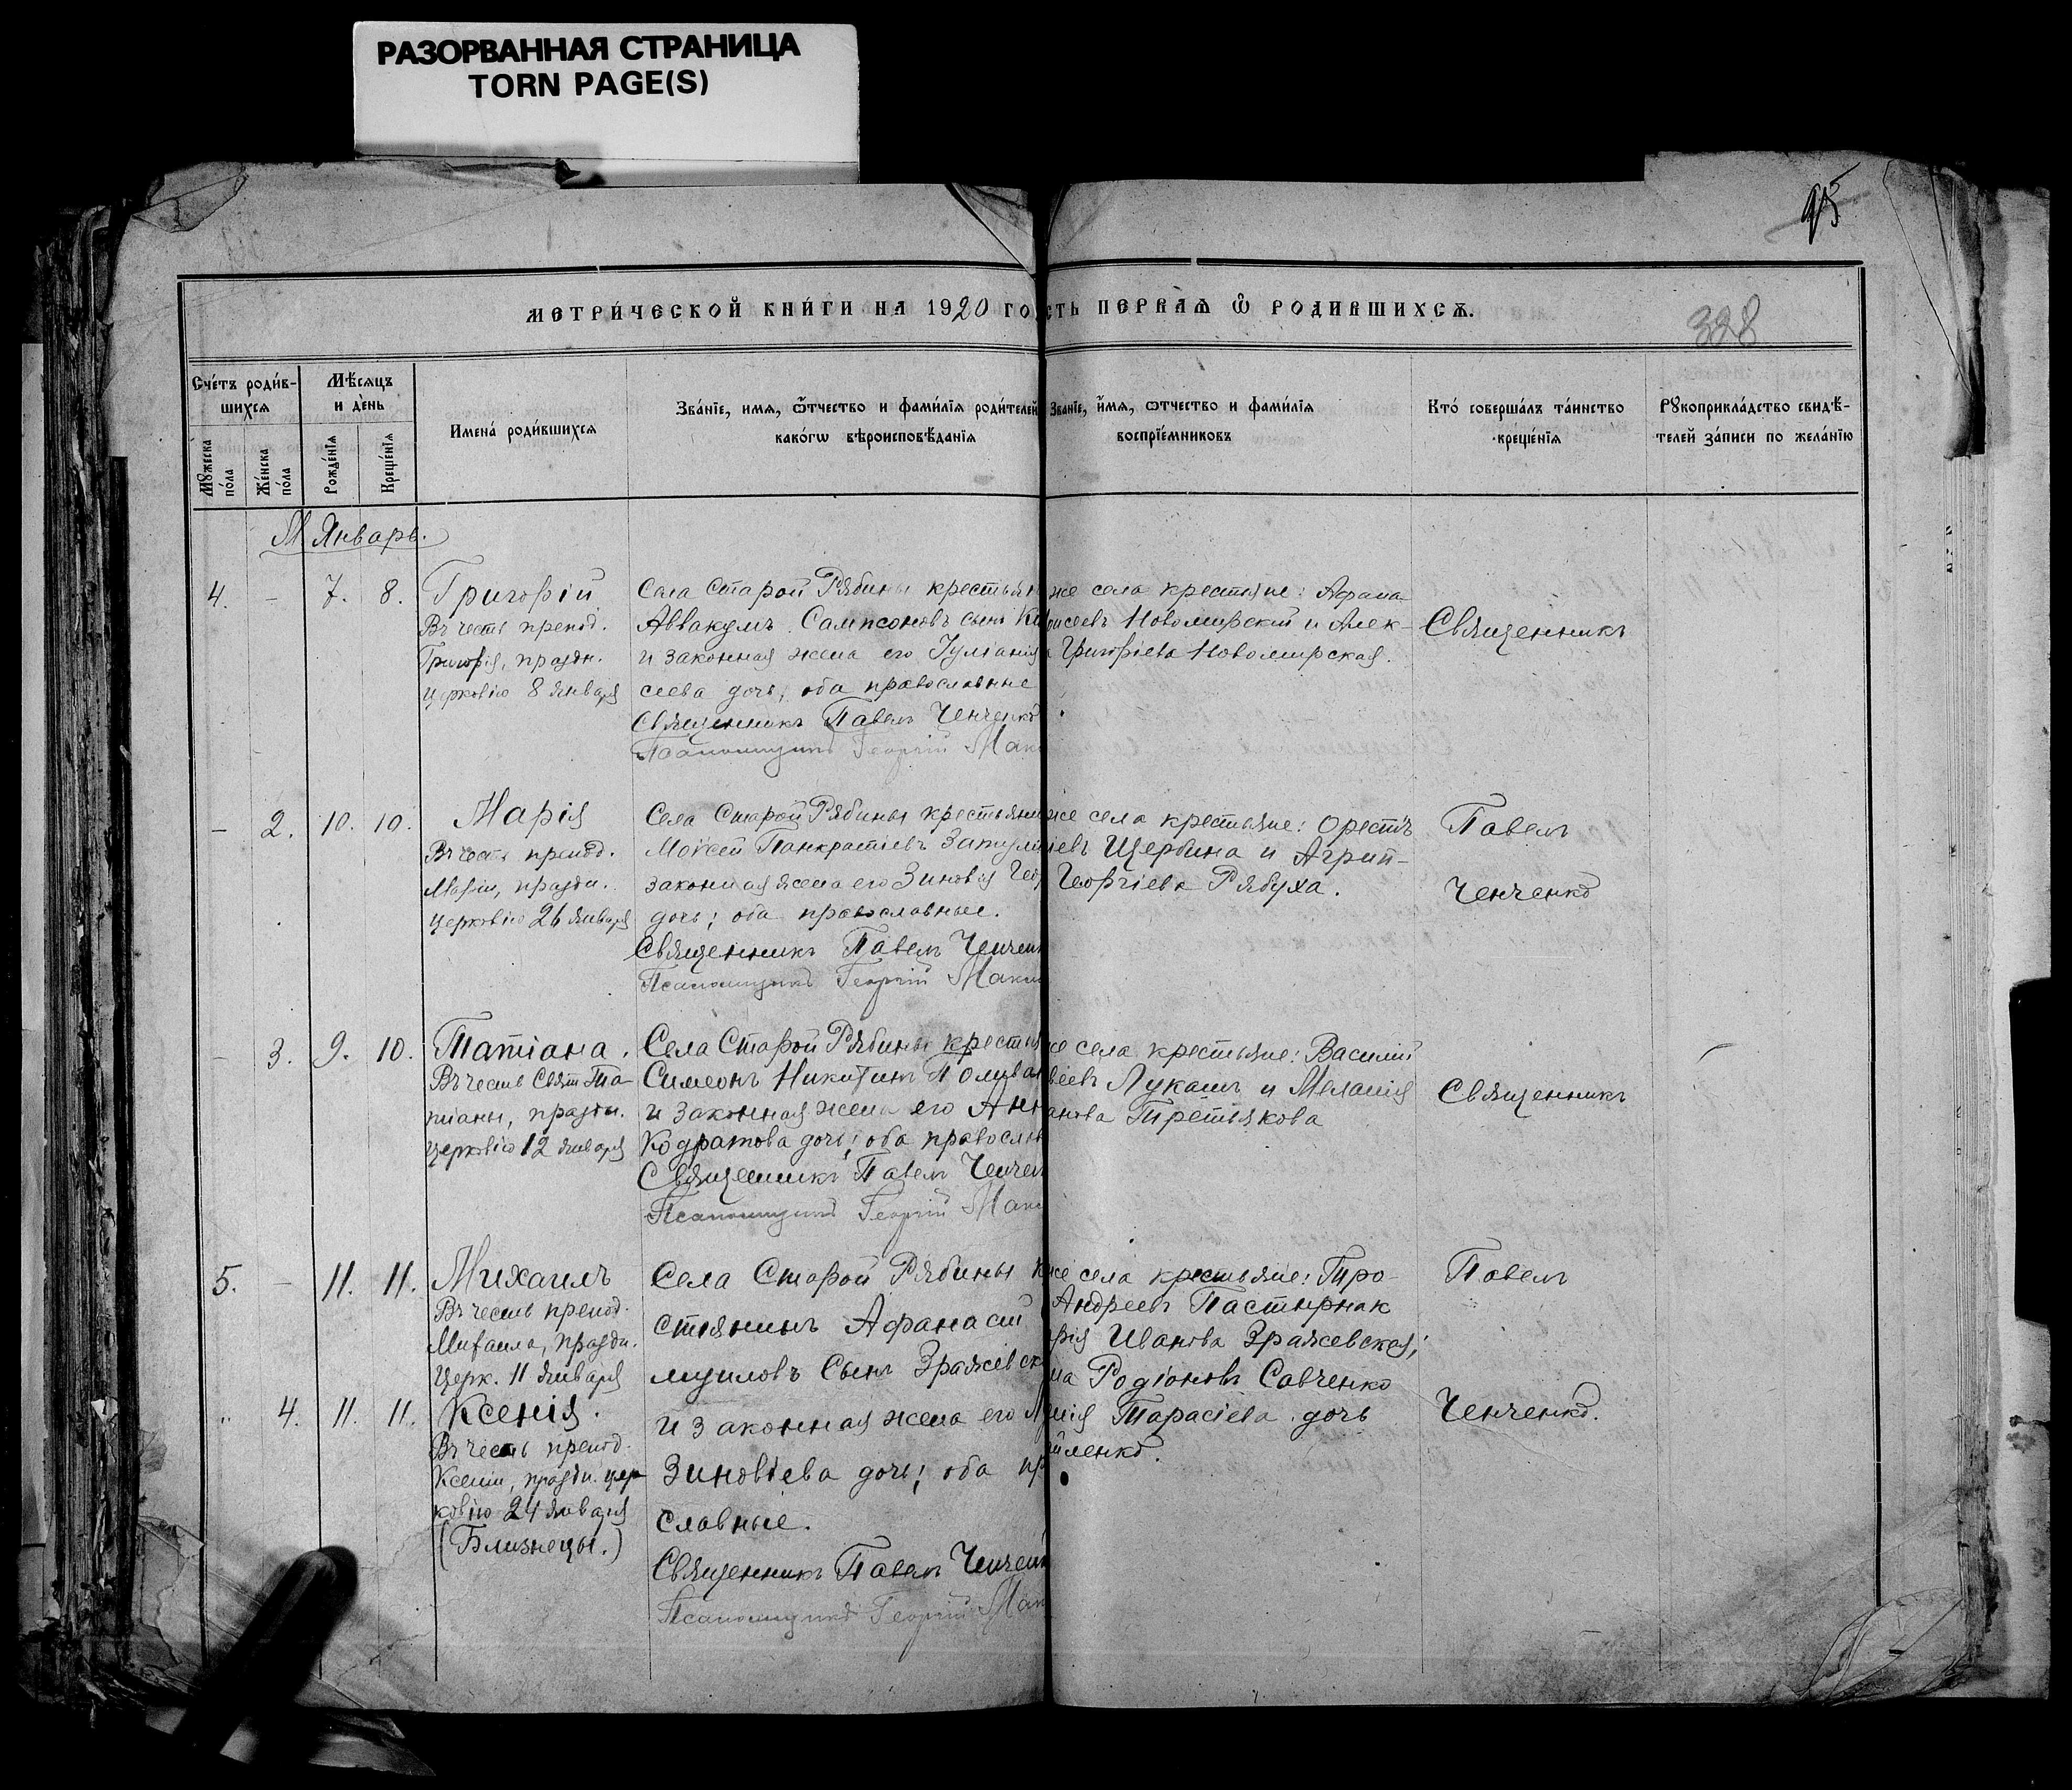 РАЗОРВАННАЯ СТРАНИЦА
TORN PAGE(S)
95
МЕТРИ́ЧЕСКОЙ КНИ́ГИ НА 1920 ГО
СТЬ ПЕРВАѦ Ѽ РОДИВШИХСѦ.
328
Сче́тъ роди́в-
шихся
Мꙋ́жеска по́ла
Же́нска по́ла
Мѣ́сяцъ
и де́нь
Рожде́нїѧ
Креще́нїѧ
Имена́ роди́вшихся
Зва́нїе, имѧ, ѻ҆́тчество и фами́лїѧ роди́телей
како́гѡ вѣроисповѣ́данїѧ
Зва́нїе, и҆́мѧ, ѻтчество и фами́лїѧ
воспрїе́мниковъ
Кто́ соверша́лъ та́инство
креще́нїѧ
Рꙋкоприкла́дство свидѣ́-
телей за́писи по жела́нїю
М Январь.
4. - 7. 8. Григорій
Въ честь препод.
Григорія, праздн.
церковію 8 января
Села Старой Рябины крестьян
Аввакумъ Сампсоновъ сынъ
и законная жена его Іуліанія
сеева дочь; оба православные
Священникъ Павелъ Ченченко
Псаломщикъ Георгій Мак
же села крестьяне: Афана-
Новомирский и Алек-
Григоріева Новомирская.
Священникъ
- 2. 10. 10. Марія
Въ честь препод.
Маріи, праздн.
церковію 26 января
Села Старой Рябины крестьянин
Моисей Панкратіевъ
законная жена его Зиновія Гео
дочь; оба православные.
Священникъ Павелъ Ченчен
Псаломщикъ Георгій Мак
же села крестьяне: Орестъ
іевъ Щербина и Агрип-
Георгіева Рябуха.
Павелъ
Ченченко
- 3. 9. 10. Татіана.
Въ честь Свят Та-
тіаны, праздн.
церковію 12 января
Села Старой Рябины крестья
Симеонъ Никитинъ
и законная жена его Ан
Кодратова дочь; оба правосла
Священникъ Павелъ Ченчен
Псаломщикъ Георгій Мак
же села крестьяне: Василій
Лукашъ и Меланія
анова Третьякова
Священникъ
5. - 11. 11. Михаилъ
Въ честь препод.
Михаила, праздн.
Церк. 11 января
" 4. 11. 11. Ксенія.
Въ честь препод.
Ксеніи, праздн. цер-
ковію 24 января
(Близнецы.)
Села Старой Рябины к
стьянинъ Афанасій
муиловъ Сынъ Зражевск
и законная жена его
Зиновіева дочь; оба пр
славные.
Священникъ Павелъ Ченчен
Псаломщикъ Георгій Мак
же села крестьяне: Тро-
Андреевъ Пастырнак
рія Иванова Зражевская;
на Родіоновъ Савченко
нія Тарасіева дочь
йленко.
Павелъ
Ченченко.